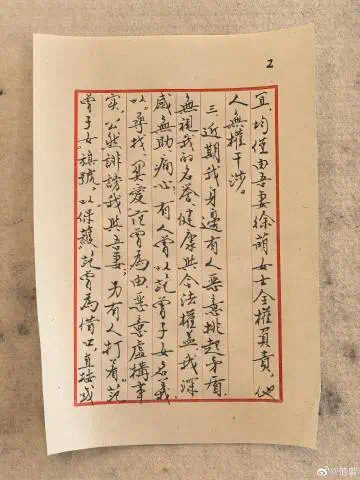 2
宜，均僅由吾妻徐萌女士全權負責，他
人無權干涉。
三、近期我身邊有人惡意挑起矛盾，
無視我的名譽、健康與合法權益，我深
感無助、痛心。有人曾以范曾子女名義
以“尋找、關愛”范曾為由，惡意虛構事
实，公然誹謗我與吾妻，另有人打着“范
曾子女”旗號，以“保護”范曾為借口，直接或
@范曾